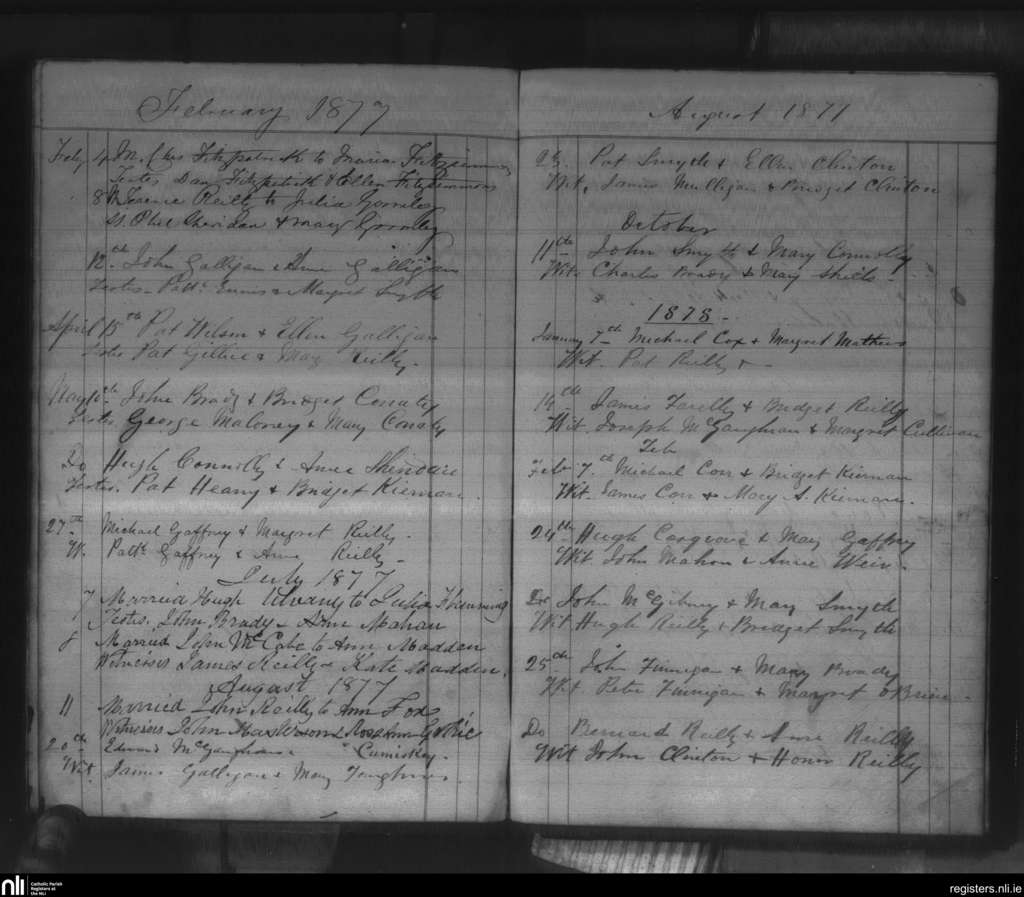 February 1877
Feby 4 Fitzpatrick to Maria Fitzsimmons
Testes Dan Fitzpatrick & Ellen Fitzsimmons
8 Reilly to Julia Gormley
Phil Sheridan & Mary Gormley
12th John Galligan & Anne Galligan
Testes Patk Ennis & Margret Smyth
April 15th Pat Wilson & Ellen Galligan
Testes Pat & Mary Reilly.
May John Brady & Bridget Conaty
Testes George Maloney & Mary Conaty
Do Hugh Connolly & Anne
Testes. Pat Heany & Bridget Kiernan.
27th Michael Gaffney & Margret Reilly.
W. Patk Gaffney & Anne Reilly
July 1877
7 Married Hugh to Julia
Testes. John Brady & Ann Mahan
8 Married John McCabe to Ann Madden
Witnesses James Reilly & Kate Madden.
August 1877
11 Married John Reilly to Ann Fox
Witnesses John Masterson & Rose Ann
20th Edward Cumiskey.
Wit. James Galligan & Mary
August 1877
23. Pat Smyth & Ellen Clinton
Wit. James Mulligan & Bridget Clinton
October
11th John Smyth & Mary Connolly
Wit. Charles Brady & Mary Sheils.
1878
January 7th Michael Cox & Margret Mathews
Wit. Pat Reilly &
14th James Farelly & Bridget Reilly
Wit. Joseph McGaughran & Margret Cullivan
Feb
Feb 7th Michael Corr & Bridget Kiernan
Wit. James Corr & Mary A. Kiernan.
24th Hugh Cosgrove & Mary Gaffney
Wit John Mahon & Anne Weir.
Do John McGibney & Mary Smyth
Wit Hugh Reilly & Bridget Smyth
25th John Finnigan & Mary Brady
Wit Peter Finnigan & Margret O'Brien
Do Bernard Reilly & Anne Reilly
Wit John Clinton & Honor Reilly
nli Catholic Parish
Registers at
the NLI
registers.nli.ie